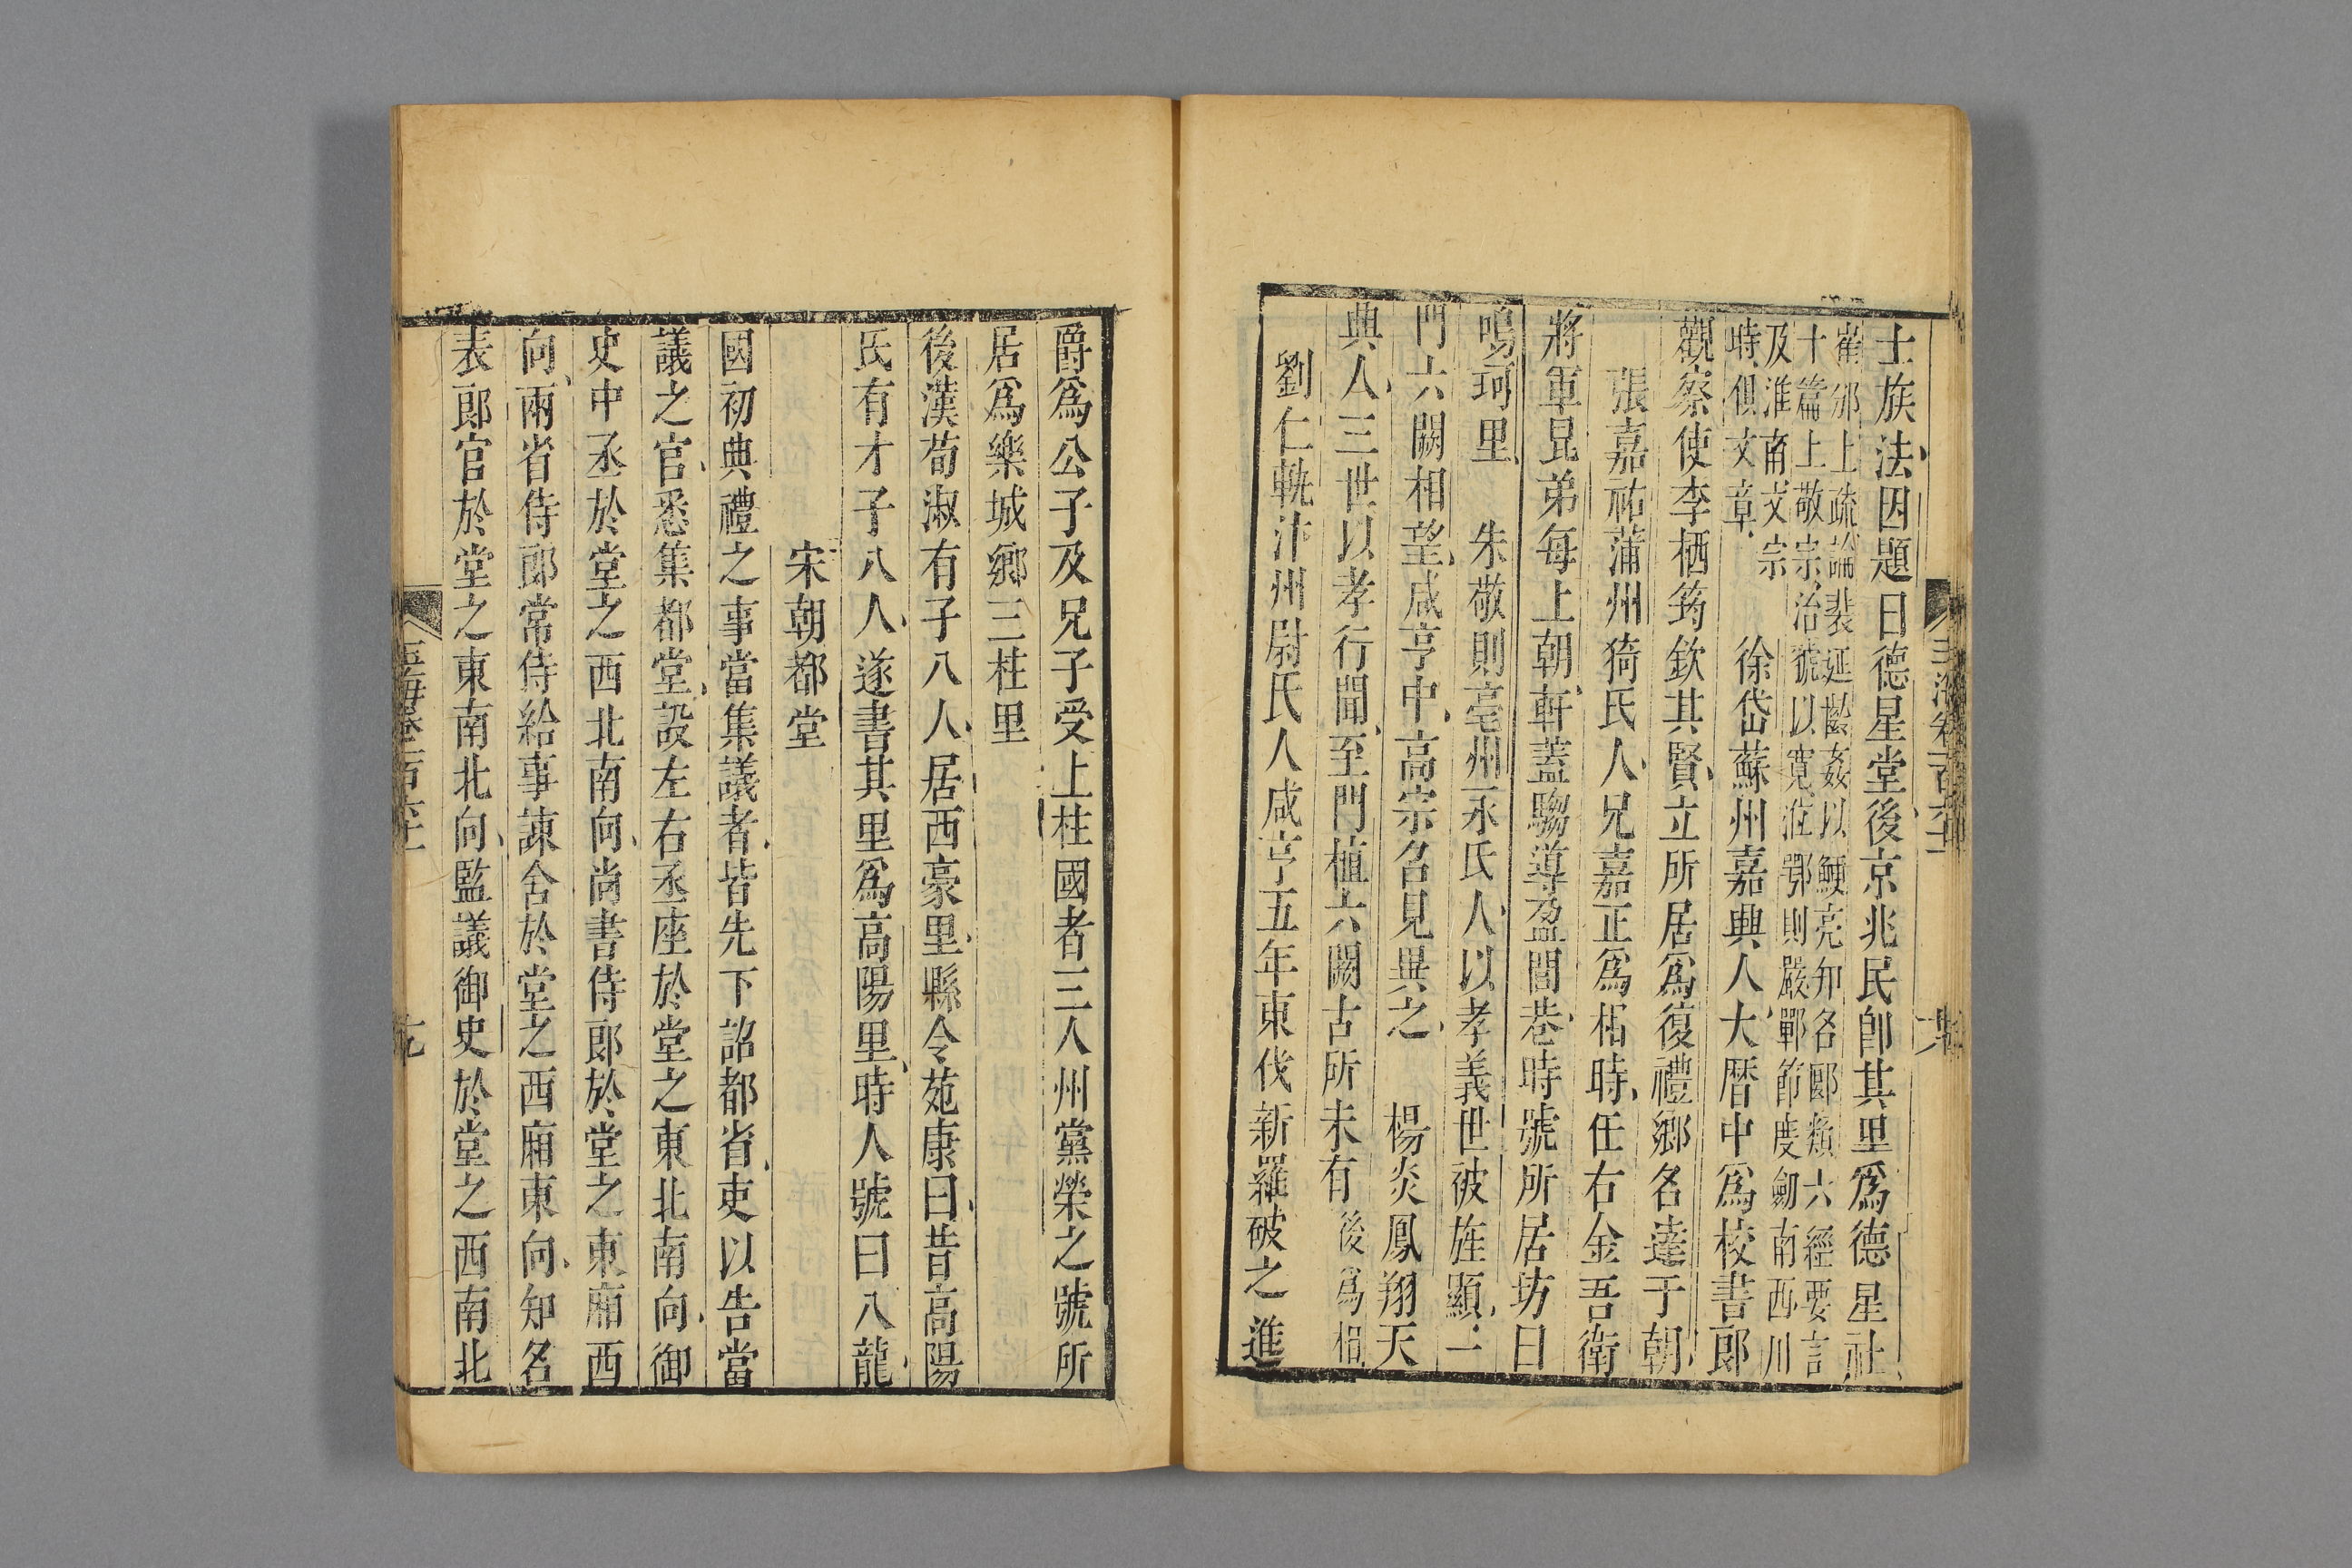 士族法因題曰德星堂後京兆民卽其里爲德星社
崔郾上疏論裴延齡姦以鯁亮知名郾類六經要言
十篇上敬宗治虢以寛涖鄂則嚴鄲節度劒南西川
及淮南文宗
時俱文章
徐岱蘇州嘉興人大曆中爲校書郎
觀察使李栖筠欽其賢立所居爲復禮鄉名達于朝
張嘉祐蒲州猗氏人兄嘉正爲相時任右金吾衛
將軍昆弟每上朝軒蓋騶導盈閭巷時號所居坊曰
鳴珂里 朱敬則亳州永氏人以孝義世被旌顯一
門六闕相望咸亨中高宗召見異之 楊炎鳳翔天
典人三世以孝行聞至門植六闕古所未有後爲相
劉仁軌汴州尉氏人咸亨五年東伐新羅破之進
玉海卷一百六十一
爵爲公子及兄子受上柱國者三人州黨榮之號所
居爲樂城鄉三柱里
後漢荀淑有子八人居西豪里縣令苑康曰昔高陽
氏有才子八人遂書其里爲高陽里時人號曰八龍
宋朝都堂
國初典禮之事當集議者皆先下詔都省吏以告當
議之官悉集都堂設左右丞座於堂之東北南向御
史中丞於堂之西北南向尚書侍郎於堂之東廂西
向兩省侍郎常侍給事諫舍於堂之西廂東向知名
表郎官於堂之東南北向監議御史於堂之西南北